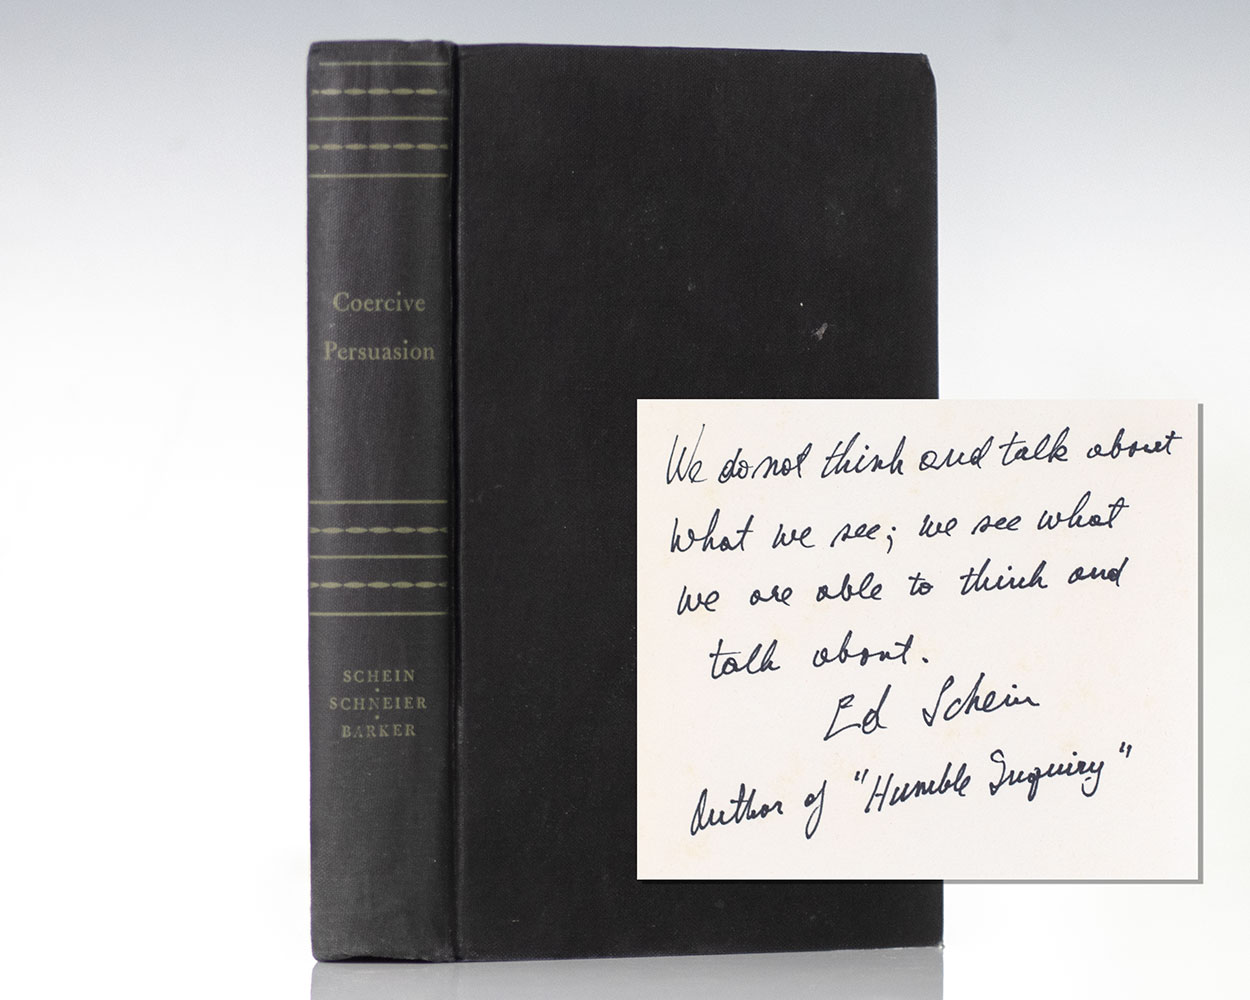 Coercive
Persuasion
SCHEIN
SCHNEIER
BARKER
We do not think and talk about
what we see; we see what
we are able to think and
talk about.
Ed Schein
Author of "Humble Inquiry"